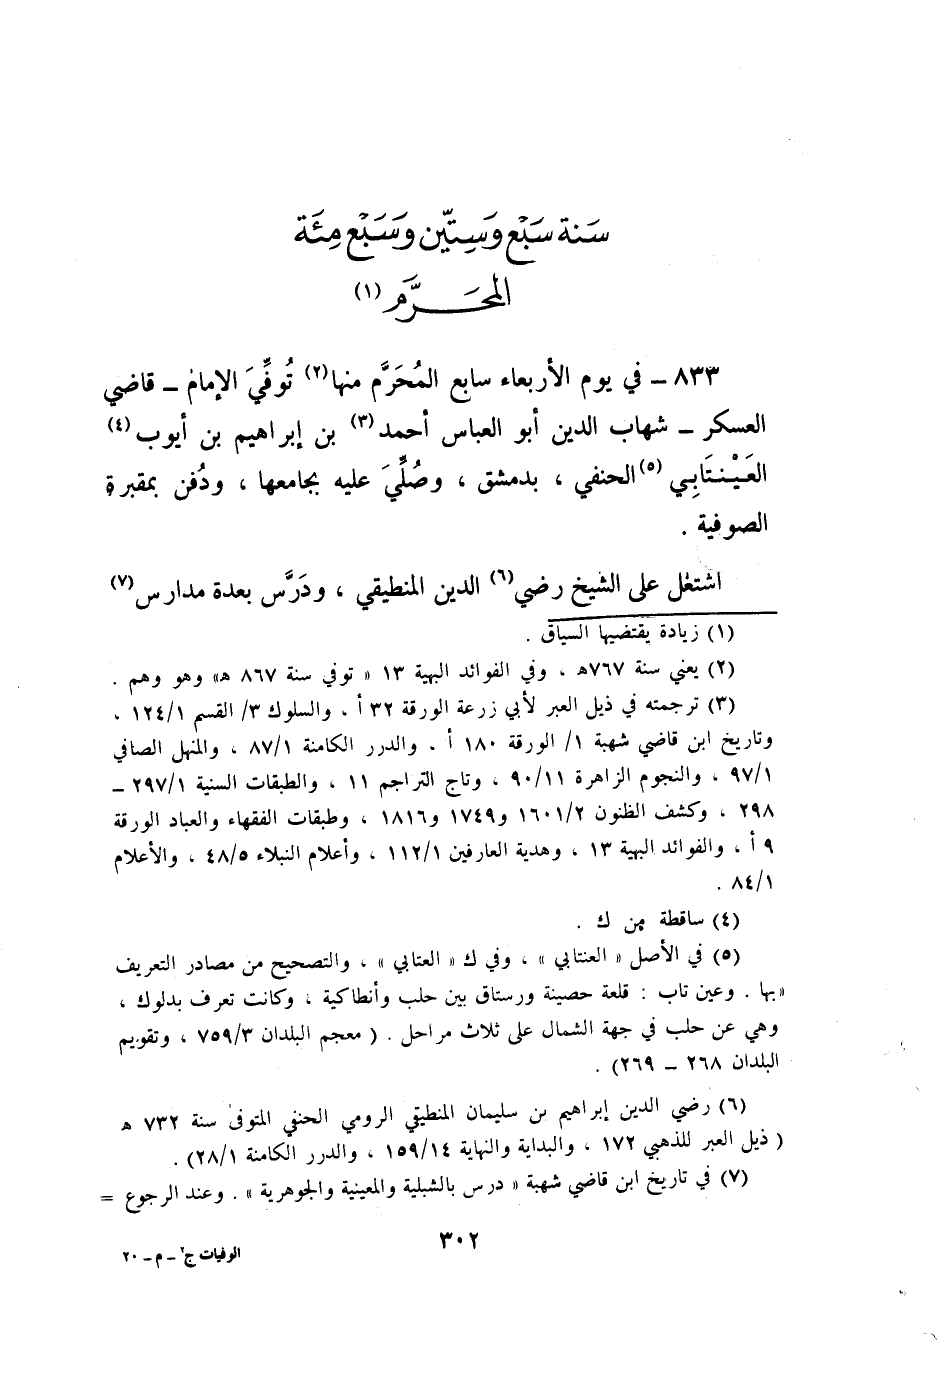 سَنة سَبْع وَسِتِّين وَسَبْع مِئَة
المحَرَّم (١)
٨٣٣ – في يوم الأربعاء سابع المُحَرَّم منها(٢) تُوفِّيَ الإمام – قاضي
العسكر – شهاب الدين أبو العباس أحمد(٣) بن إبراهيم بن أيوب (٤)
العَيْنتَابِي (٥)الحنفي ، بدمشق ، وصُلِّيَ عليه بجامعها ، ودُفن بمقبرة
الصوفية .
اشتغل على الشيخ رضي(٦) الدين المنطيقي ، ودَرَّس بعدة مدارس(٧)
(١) زيادة يقتضيها السياق .
(٢) يعني سنة ٧٦٧ه ، وفي الفوائد البهية ١٣ « توفي سنة ٨٦٧ ه» وهو وهم .
(٣) ترجمته في ذيل العبر لأبي زرعة الورقة ٣٢ أ ، والسلوك ٣/ القسم ١٢٤/١ ،
وتاريخ ابن قاضي شهبة ١/ الورقة ١٨٠ أ . والدرر الكامنة ٨٧/١ ، والمنهل الصافي
٩٧/١ ، والنجوم الزاهرة ٩٠/١١ ، وتاج التراجم ١١ ، والطبقات السنية ٢٩٧/١ –
٢٩٨ ، وكشف الظنون ١٦٠١/٢ و١٧٤٩ و١٨١٦ ، وطبقات الفقهاء والعباد الورقة
٩ أ ، والفوائد البهية ١٣ ، وهدية العارفين ١١٢/١ ، وأعلام النبلاء ٤٨/٥ ، والأعلام
٨٤/١ .
(٤) ساقطة من ك .
(٥) في الأصل « العنتابي » ، وفي ك « العتابي » ، والتصحيح من مصادر التعريف
بها . وعين تاب : قلعة حصينة ورستاق بين حلب وأنطاكية ، وكانت تعرف بدلوك ،
وهي عن حلب في جهة الشمال على ثلاث مراحل . ( معجم البلدان ٧٥٩/٣ ، وتقويم
البلدان ٢٦٨ – ٢٦٩) .
(٦) رضي الدين إبراهيم بن سليمان المنطيقي الرومي الحنفي المتوفى سنة ٧٣٢ ه
( ذيل العبر للذهبي ١٧٢ ، والبداية والنهاية ١٥٩/١٤ ، والدرر الكامنة ٢٨/١) .
(٧) في تاريخ ابن قاضي شهبة « درس بالشبلية والمعينية والجوهرية » . وعند الرجوع =
٣٠٢
الوفيات ج٢ – م – ٢٠